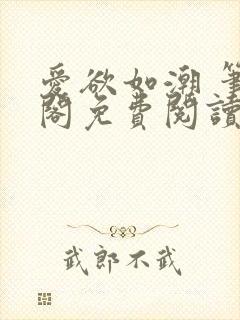 愛欲如潮 筆
閣免費閱讀
武郎不武